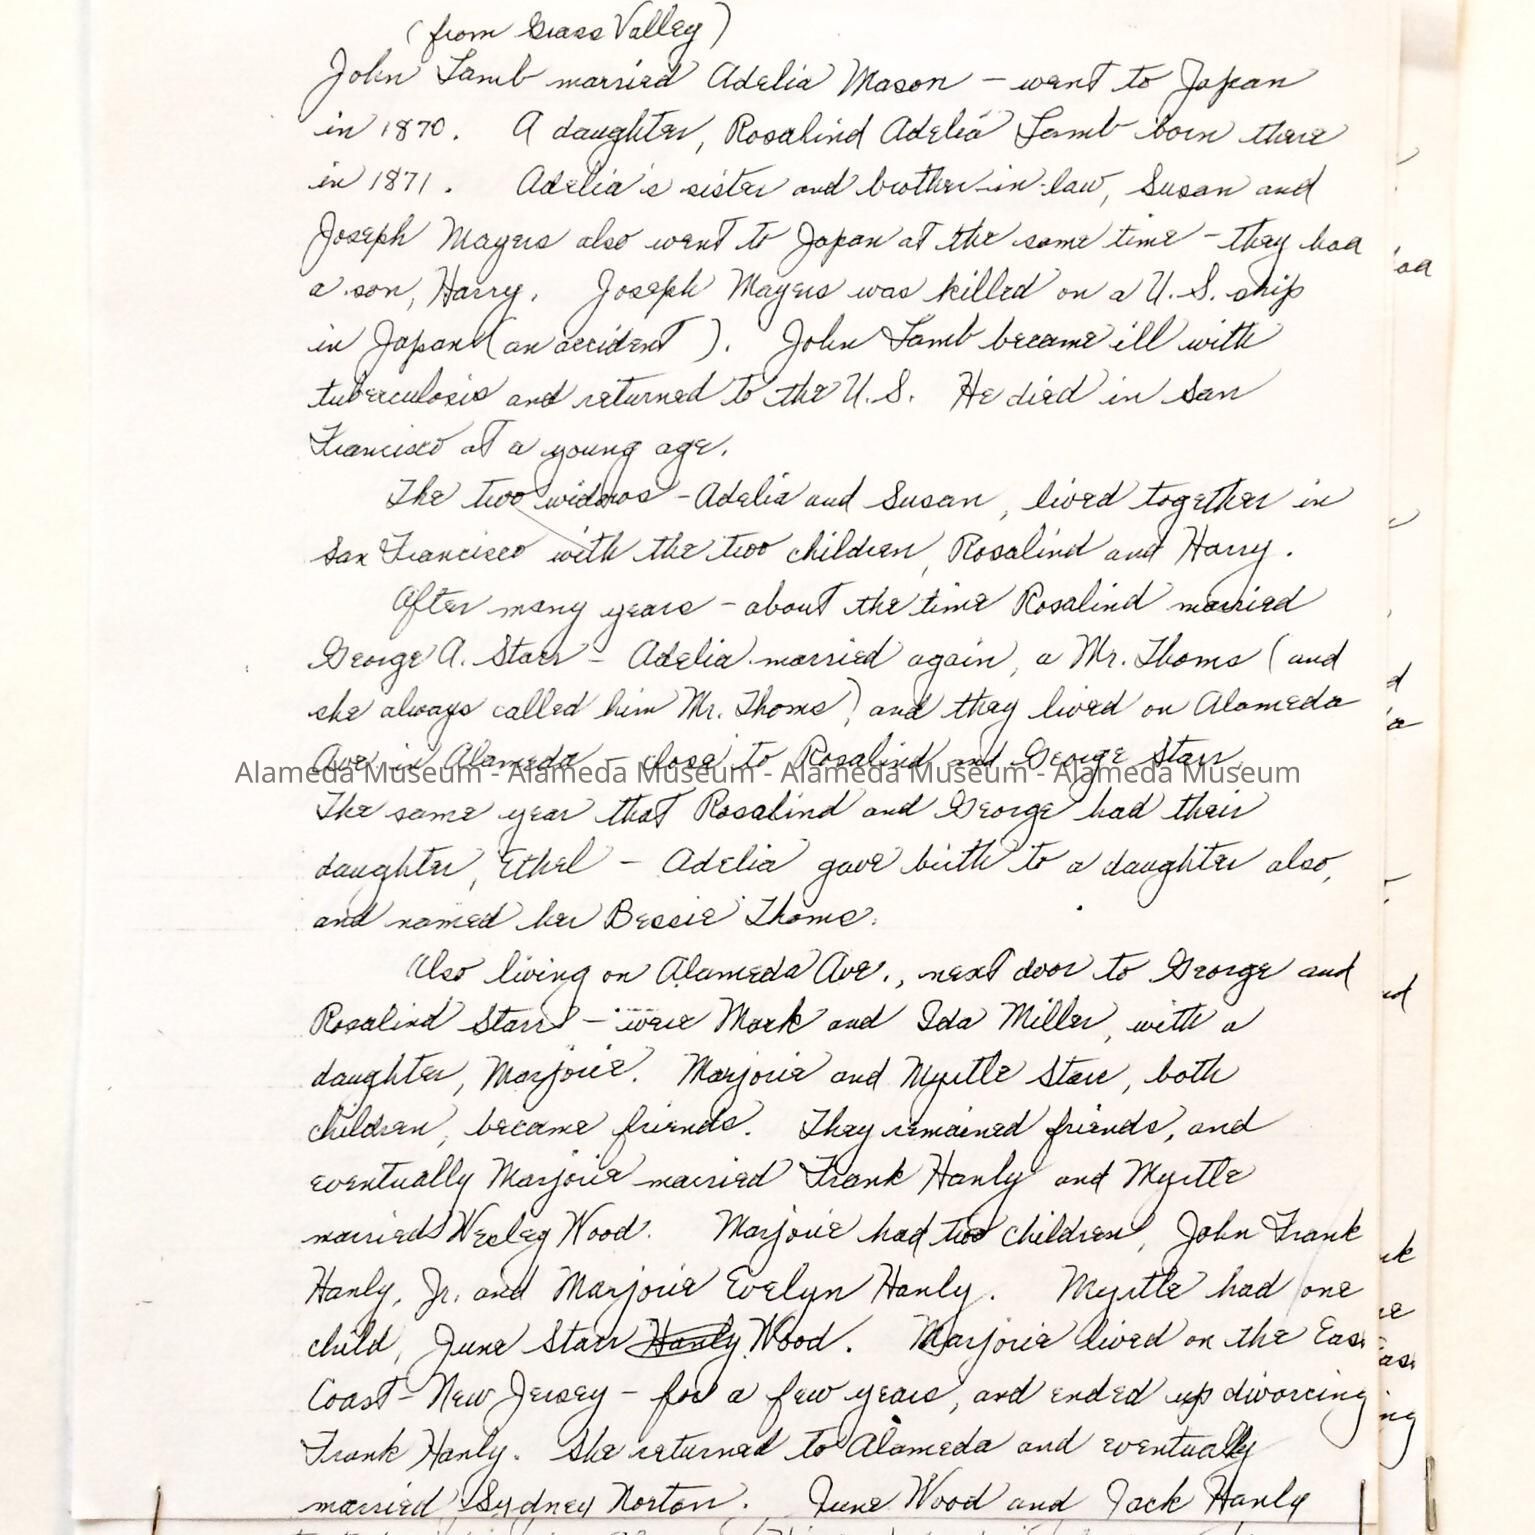 (from Grass Valley)
John Lamb married Adelia Mason - went to Japan
in 1870. A daughter, Rosalind Adelia Lamb born there
in 1871. Adelia's sister and brother-in-law, Susan and
Joseph Mayers also went to Japan at the same time - they had
a son, Harry. Joseph Mayers was killed on a U.S. ship
in Japan (an accident). John Lamb became ill with
tuberculosis and returned to the U.S. He died in San
Francisco at a young age.
The two widows - Adelia and Susan, lived together in
San Francisco with the two children, Rosalind and Harry.
After many years - about the time Rosalind married
George A. Starr - Adelia married again, a Mr. Thoms (and
she always called him Mr. Thoms) and they lived on Alameda
Ave in Alameda - close to Rosalind and George Starr.
Alameda Museum - Alameda Museum - Alameda Museum - Alameda Museum
The same year that Rosalind and George had their
daughter, Ethel - Adelia gave birth to a daughter also,
and named her Bessie Thoms.
Also living on Alameda Ave., next door to George and
Rosalind Starr - were Mark and Ida Miller, with a
daughter, Marjorie. Marjorie and Myrtle Starr, both
children, became friends. They remained friends, and
eventually Marjorie married Frank Hanly and Myrtle
married Wesley Wood. Marjorie had two children, John Frank
Hanly, Jr. and Marjorie Evelyn Hanly. Myrtle had one
child, June Starr Hanly Wood. Marjorie lived on the East
Coast - New Jersey - for a few years, and ended up divorcing
Frank Hanly. She returned to Alameda and eventually
married Sydney Norton. June Wood and Jack Hanly